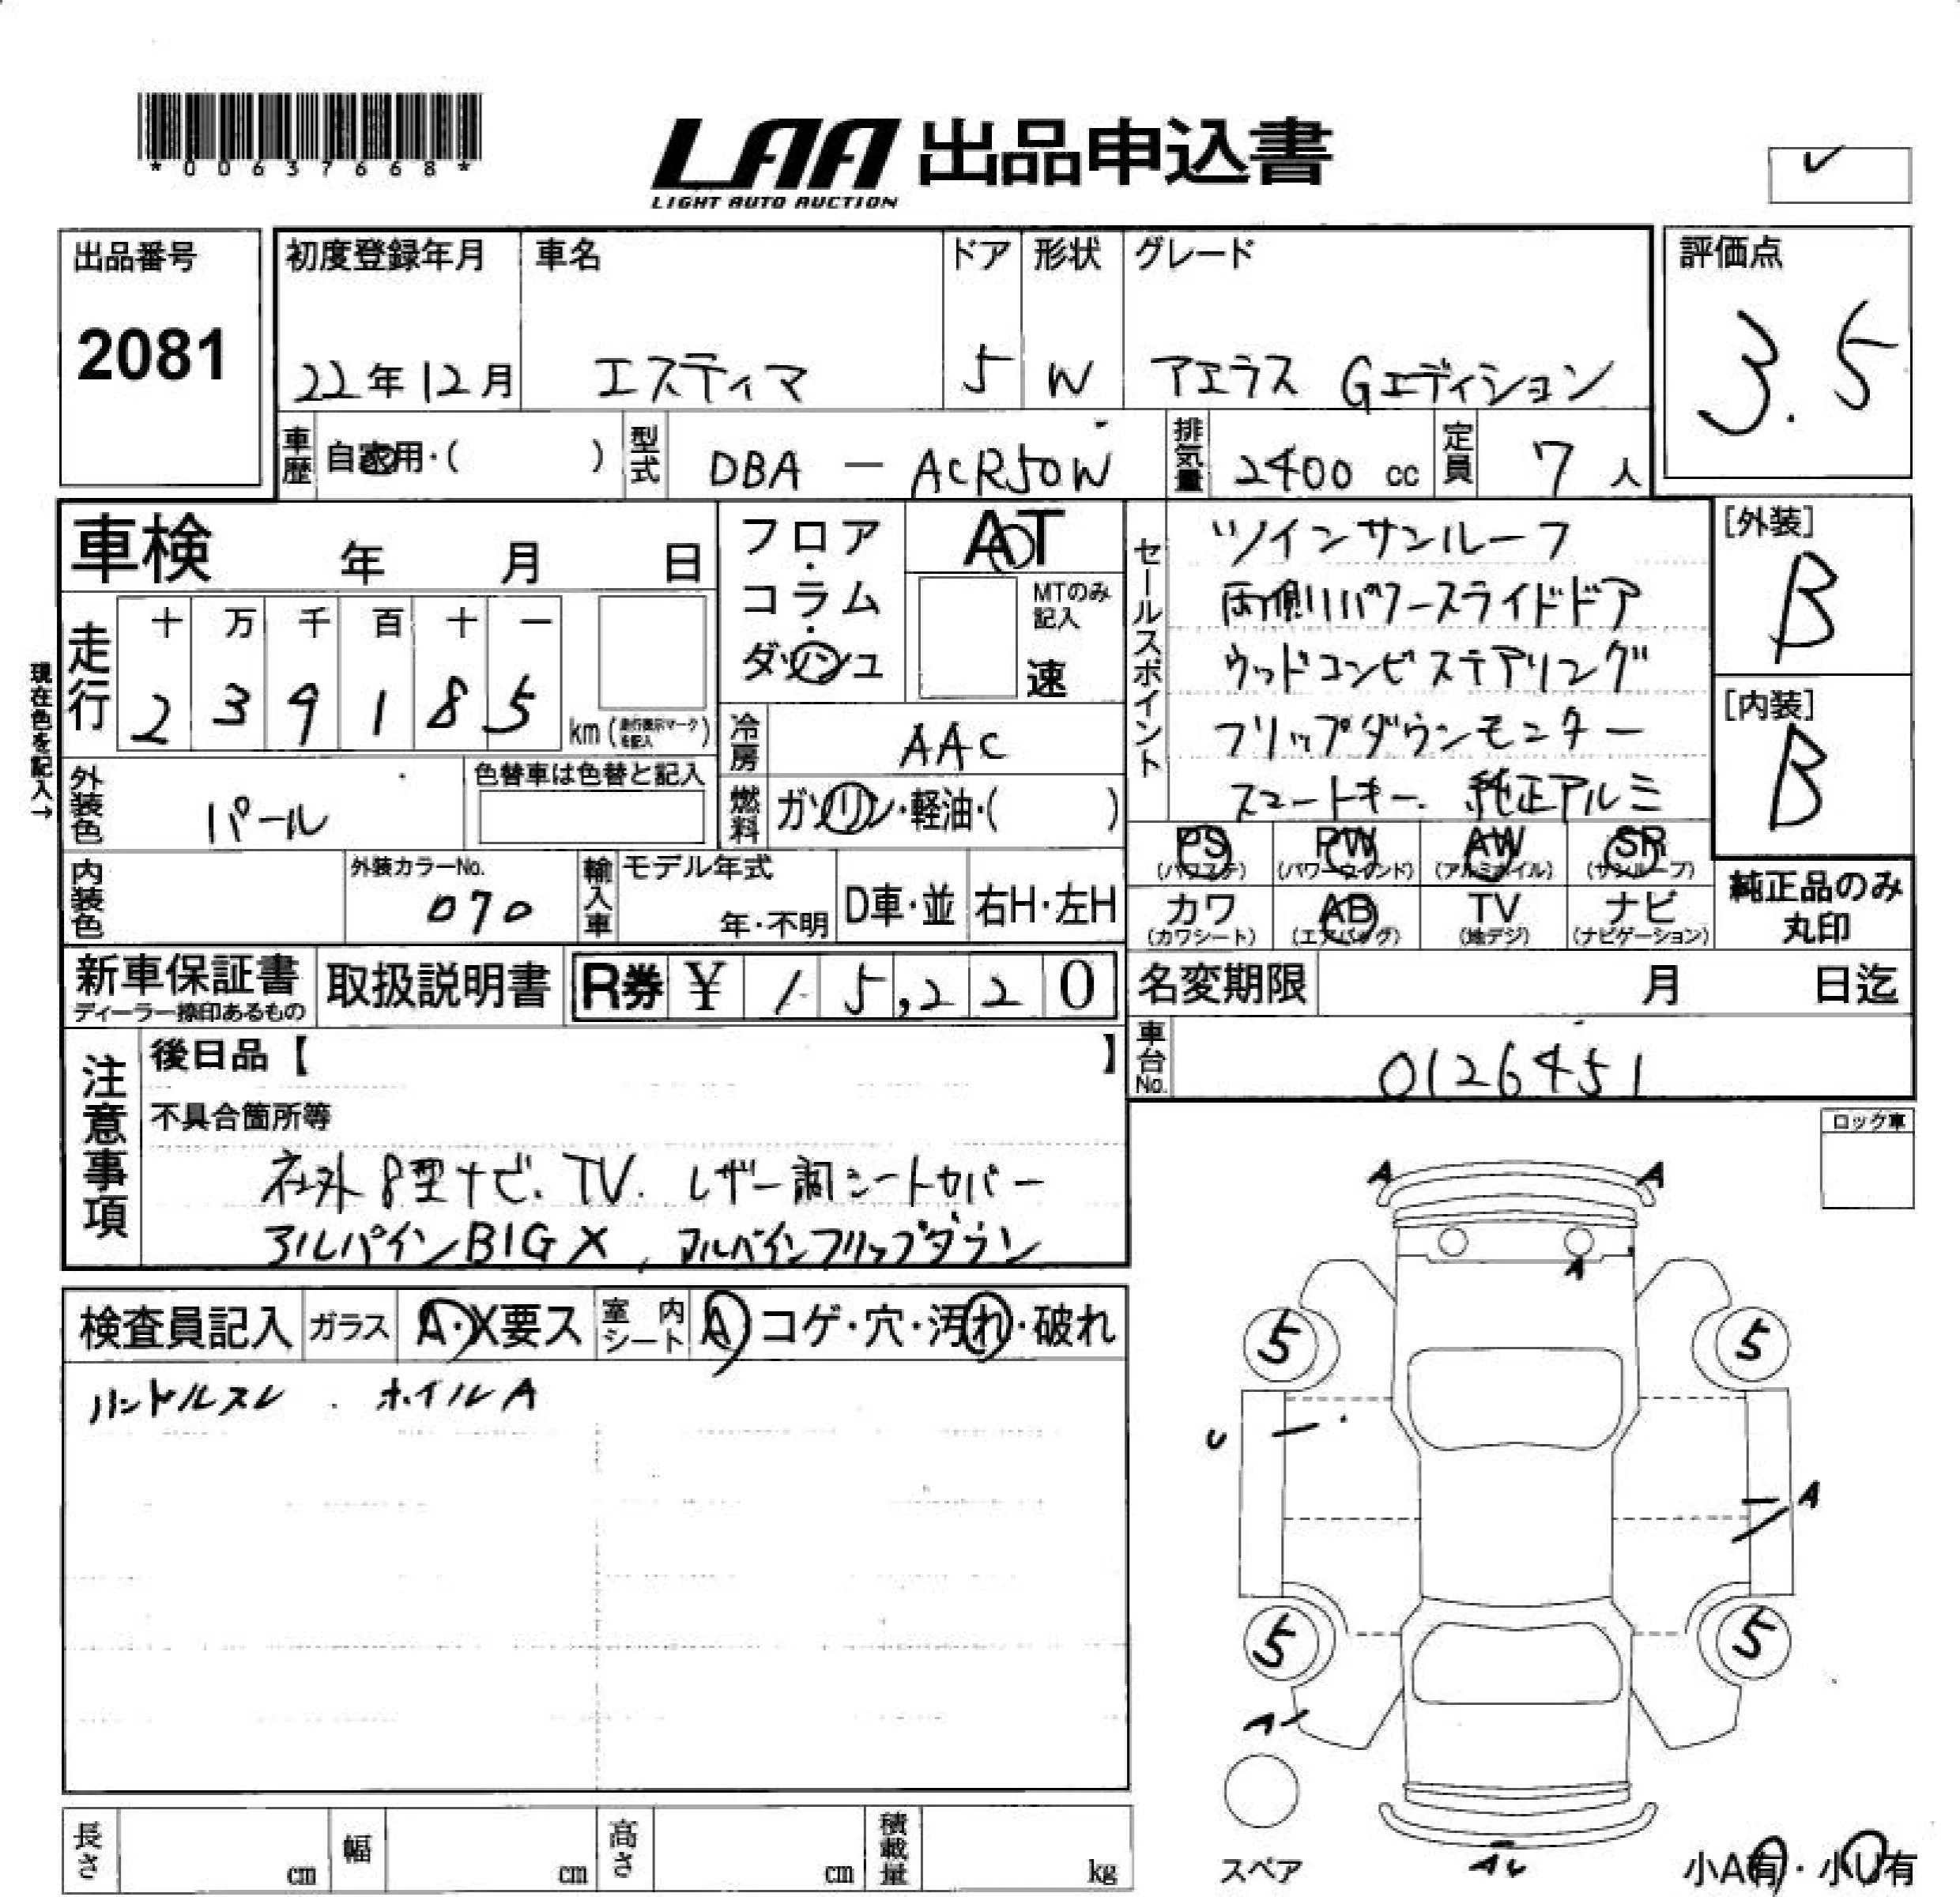 *00637668*
LAA 出品申込書
LIGHT AUTO AUCTION
出品番号
2081
初度登録年月
22年12月
車名
エスティマ
ドア
5
形状
W
グレード
アエラス Gエディション
評価点
3.5
車歴
自家用・( )
型式
DBA — ACR50W
排気量
2400 cc
定員
7 人
車検 年 月 日
フロア・コラム・ダッシュ
AT
MTのみ記入
速
セールスポイント
ツインサンルーフ
両側パワースライドドア
ウッドコンビステアリング
フリップダウンモニター
スマートキー. 純正アルミ
[外装]
B
[内装]
B
現在色を記入→
走行
十 万 千 百 十 一
2 3 9 1 8 5
km (走行表示マークを記入)
冷房
AAC
外装色
パール
色替車は色替と記入
燃料
ガソリン・軽油・( )
PS (パワステ)
PW (パワーウインド)
AW (アルミホイル)
SR (サンルーフ)
カワ (カワシート)
AB (エアバッグ)
TV (地デジ)
ナビ (ナビゲーション)
純正品のみ丸印
内装色
外装カラーNo.
070
輸入車
モデル年式
年・不明
D車・並
右H・左H
新車保証書
ディーラー捺印あるもの
取扱説明書
R券 ¥ 15,220
名変期限 月 日迄
車台No.
0126451
注意事項
後日品【 】
不具合箇所等
社外8型ナビ. TV. レザー調シートカバー
アルパインBIG X, アルパインフリップダウン
ロック車
検査員記入
ガラス
A・X要ス
室内シート
A コゲ・穴・汚れ・破れ
ハンドルスレ . ホイルA
A
A
A
5
5
U
A
5
5
AU
スペア
AU
小A有・小U有
長さ cm
幅 cm
高さ cm
積載量 kg